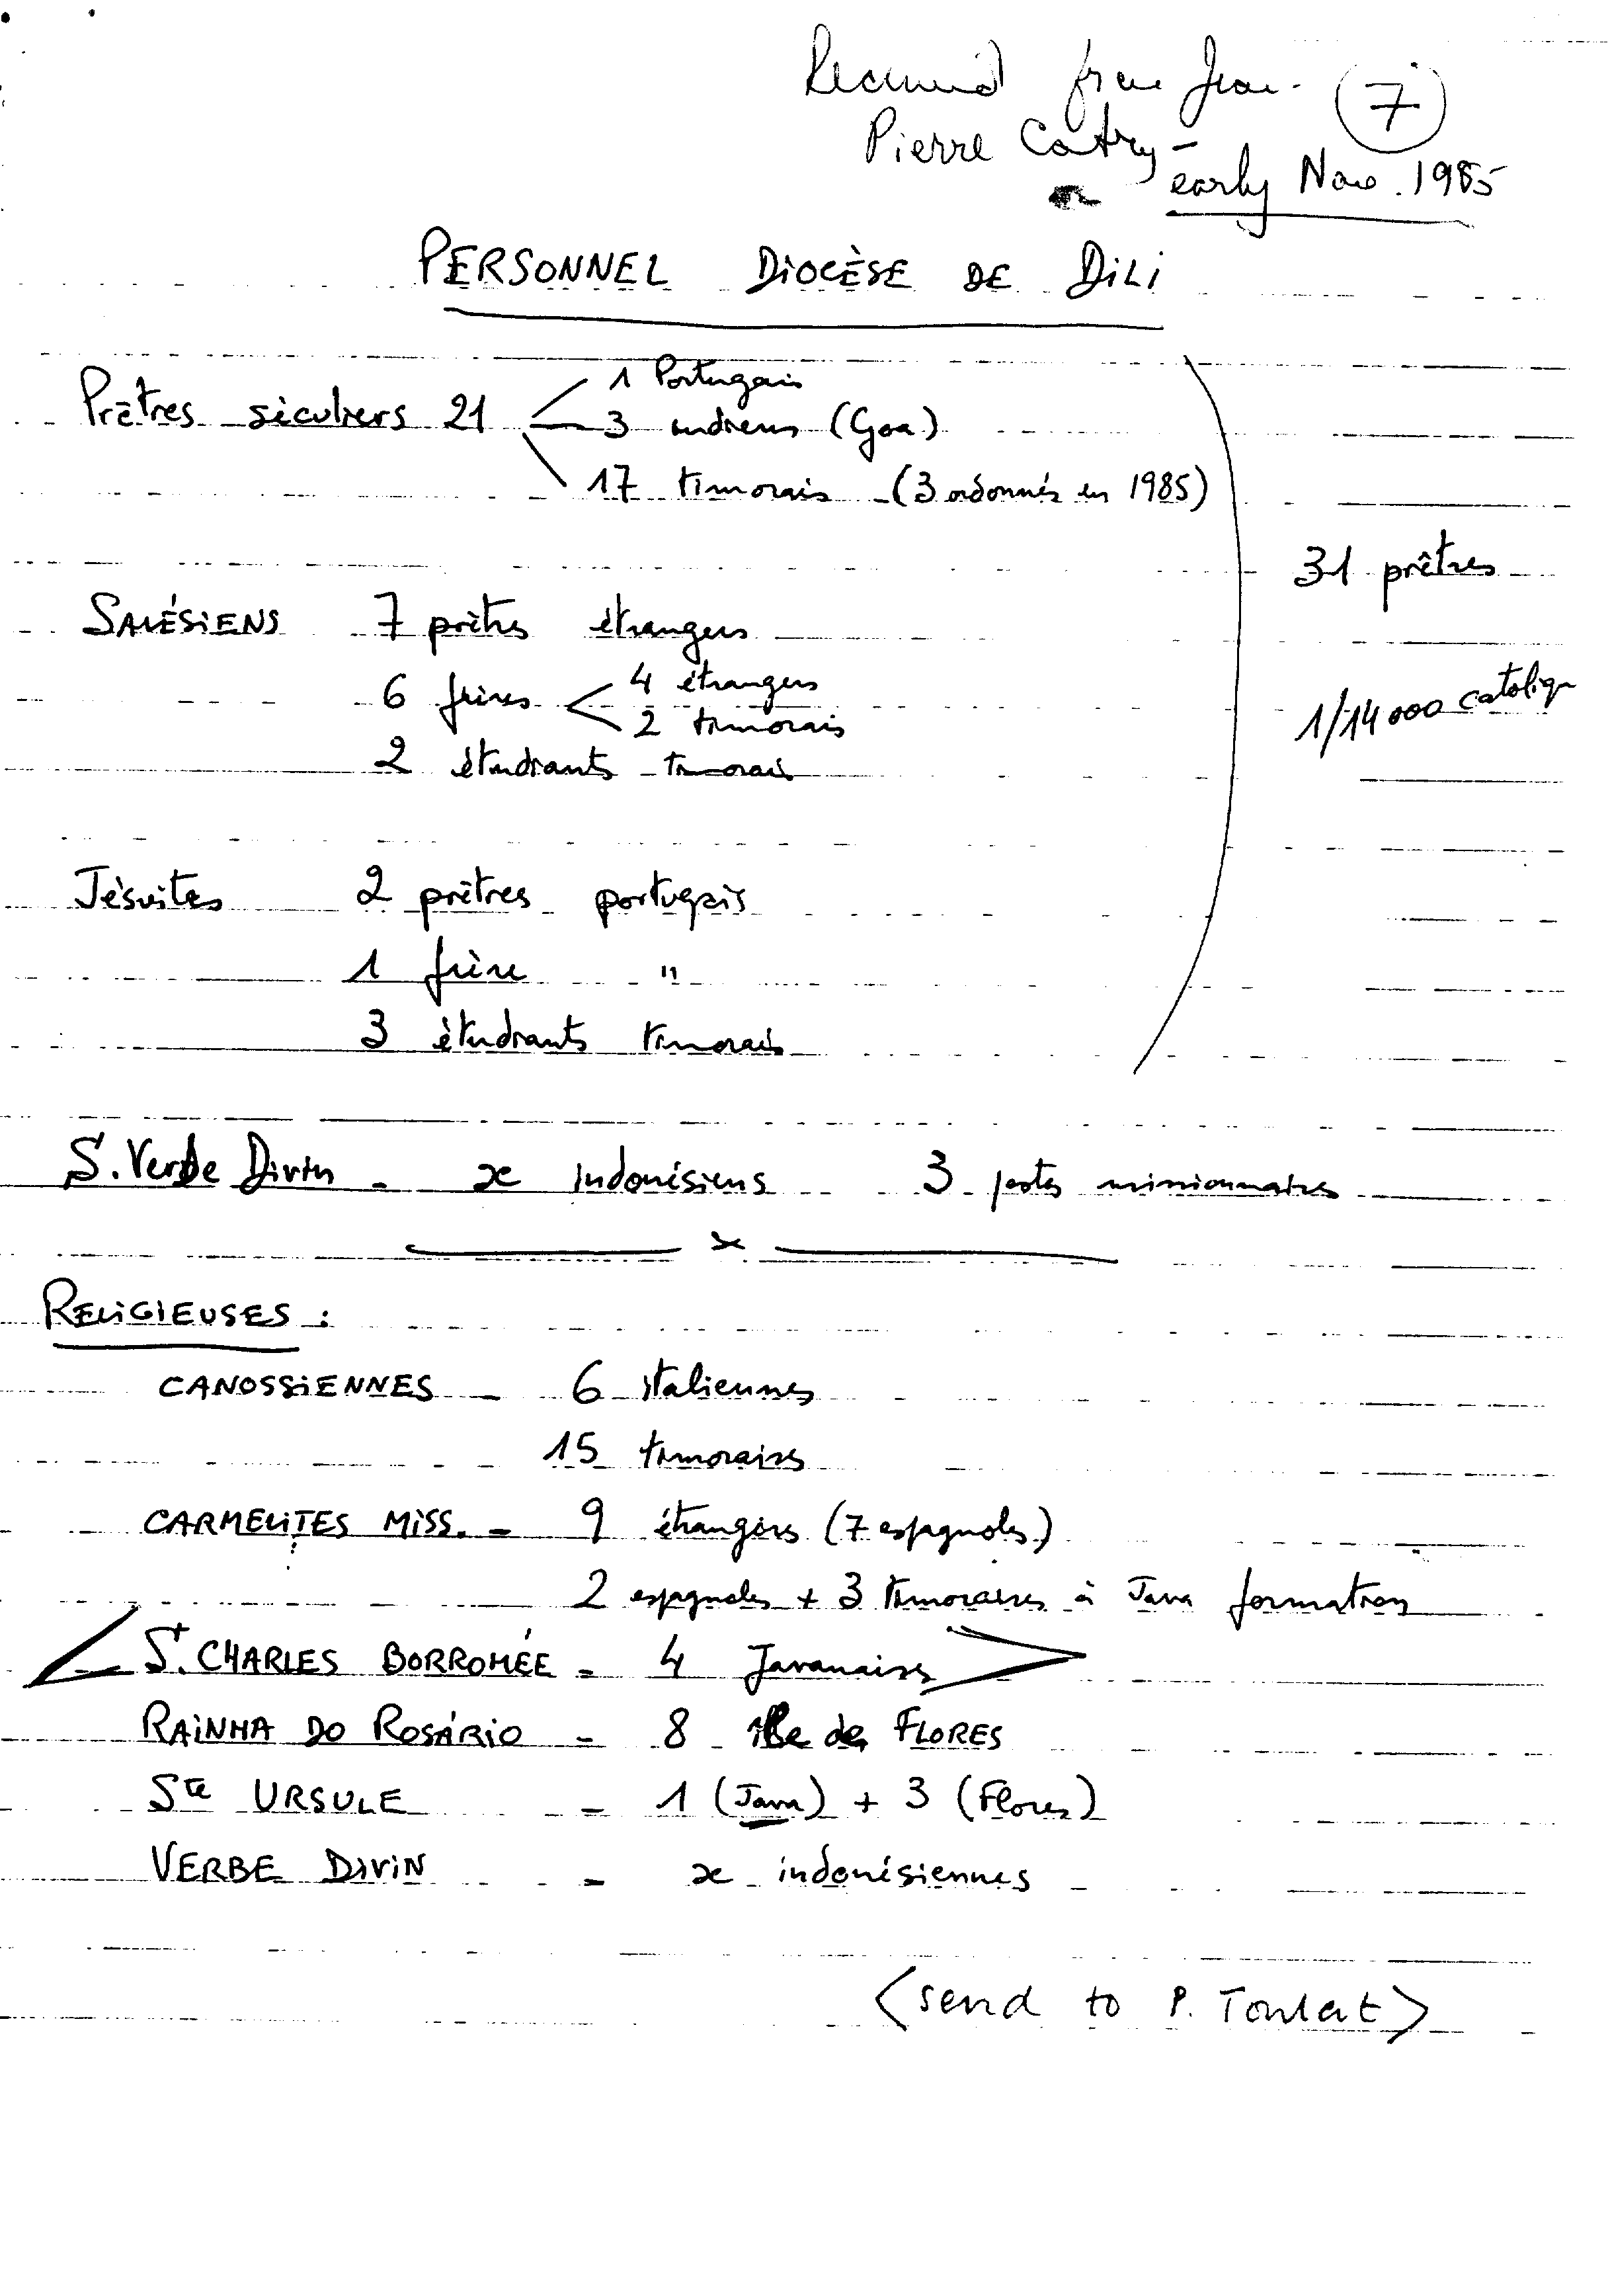 Received from Jean- 7
Pierre Catry -
early Nov. 1985
PERSONNEL DIOCÈSE DE DILI
1 Portugais
Prêtres séculiers 21 3 indiens (Goa)
17 timorais (3 ordonnés en 1985)
31 prêtres
SALÉSIENS 7 prêtres étrangers
4 étrangers
6 frères
2 timorais
1/14 000 catoliq
2 étudiants timorais
Jésuites 2 prêtres portugais
1 frère "
3 étudiants timorais
S. Verbe Divin - x Indonésiens 3 postes missionnaires
x
RELIGIEUSES :
CANOSSIENNES - 6 italiennes
15 timoraises
CARMELITES MISS. - 9 étrangères (7 espagnoles)
2 espagnoles + 3 timoraises à Java formation
< St. CHARLES BORROMÉE - 4 Javanaises >
RAINHA DO ROSÁRIO - 8 île de FLORES
Ste URSULE - 1 (Java) + 3 (Flores)
VERBE DIVIN - x indonésiennes
<send to P. Toulat>